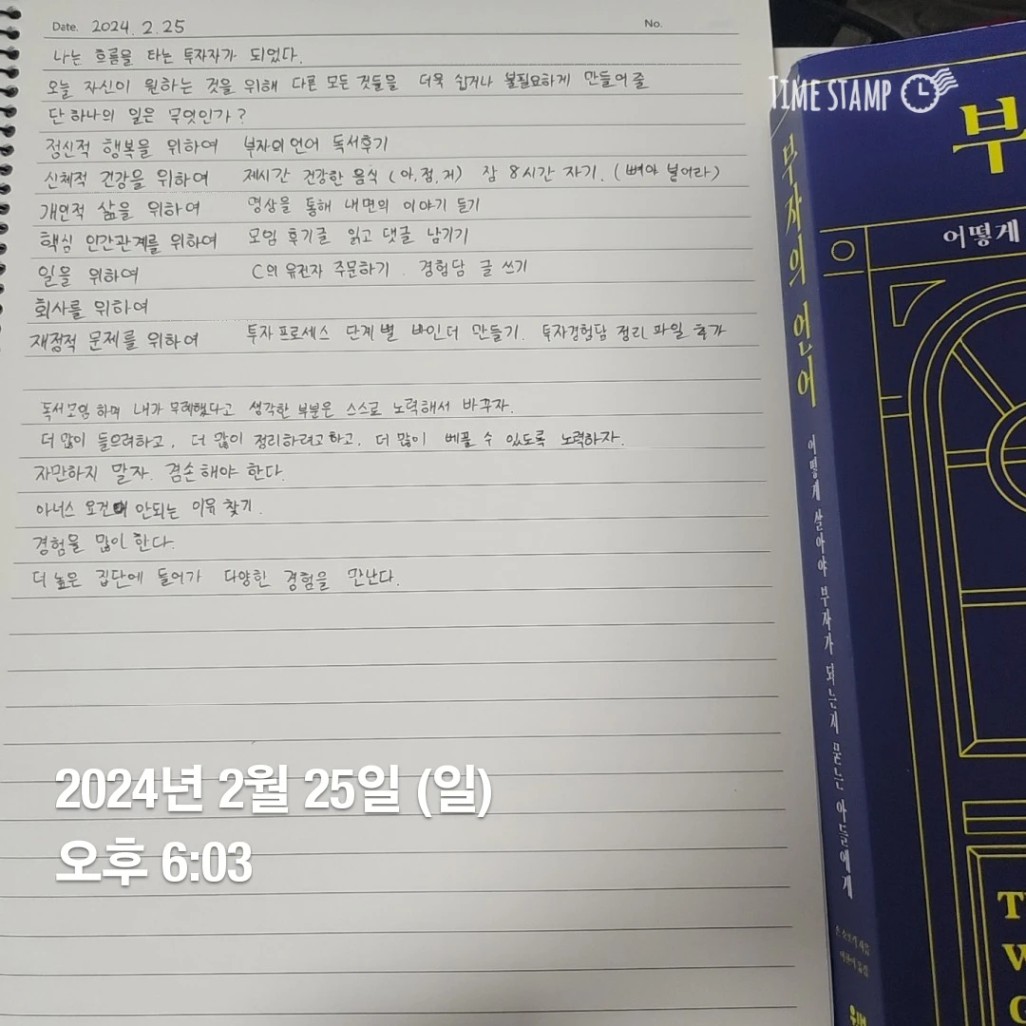 Date. 2024. 2. 25
No.
나는 흐름을 타는 투자자가 되었다.
오늘 자신이 원하는 것을 위해 다른 모든 것들을 더욱 쉽거나 불필요하게 만들어 줄
단 하나의 일은 무엇인가?
정신적 행복을 위하여 부자의 언어 독서후기
신체적 건강을 위하여 제시간 건강한 음식 (아, 점, 저) 잠 8시간 자기. (빼야 넣어라)
개인적 삶을 위하여 명상을 통해 내면의 이야기 듣기
핵심 인간관계를 위하여 모임 후기글 읽고 댓글 남기기
일을 위하여 C의 유전자 주문하기. 경험담 글 쓰기
회사를 위하여
재정적 문제를 위하여 투자프로세스 단계별 바인더 만들기. 투자경험담 정리 파일 추가
독서모임 하며 내가 무례했다고 생각한 부분은 스스로 노력해서 바꾸자.
더 많이 들으려하고, 더 많이 정리하려고하고, 더 많이 베풀 수 있도록 노력하자.
자만하지 말자. 겸손해야 한다.
아너스 요건 안되는 이유 찾기.
경험을 많이 한다.
더 높은 집단에 들어가 다양한 경험을 만난다.
2024년 2월 25일 (일)
오후 6:03
TIME STAMP
부자의 언어
어떻게 살아야 부자가 되는지 묻는 아들에게
부
어떻게